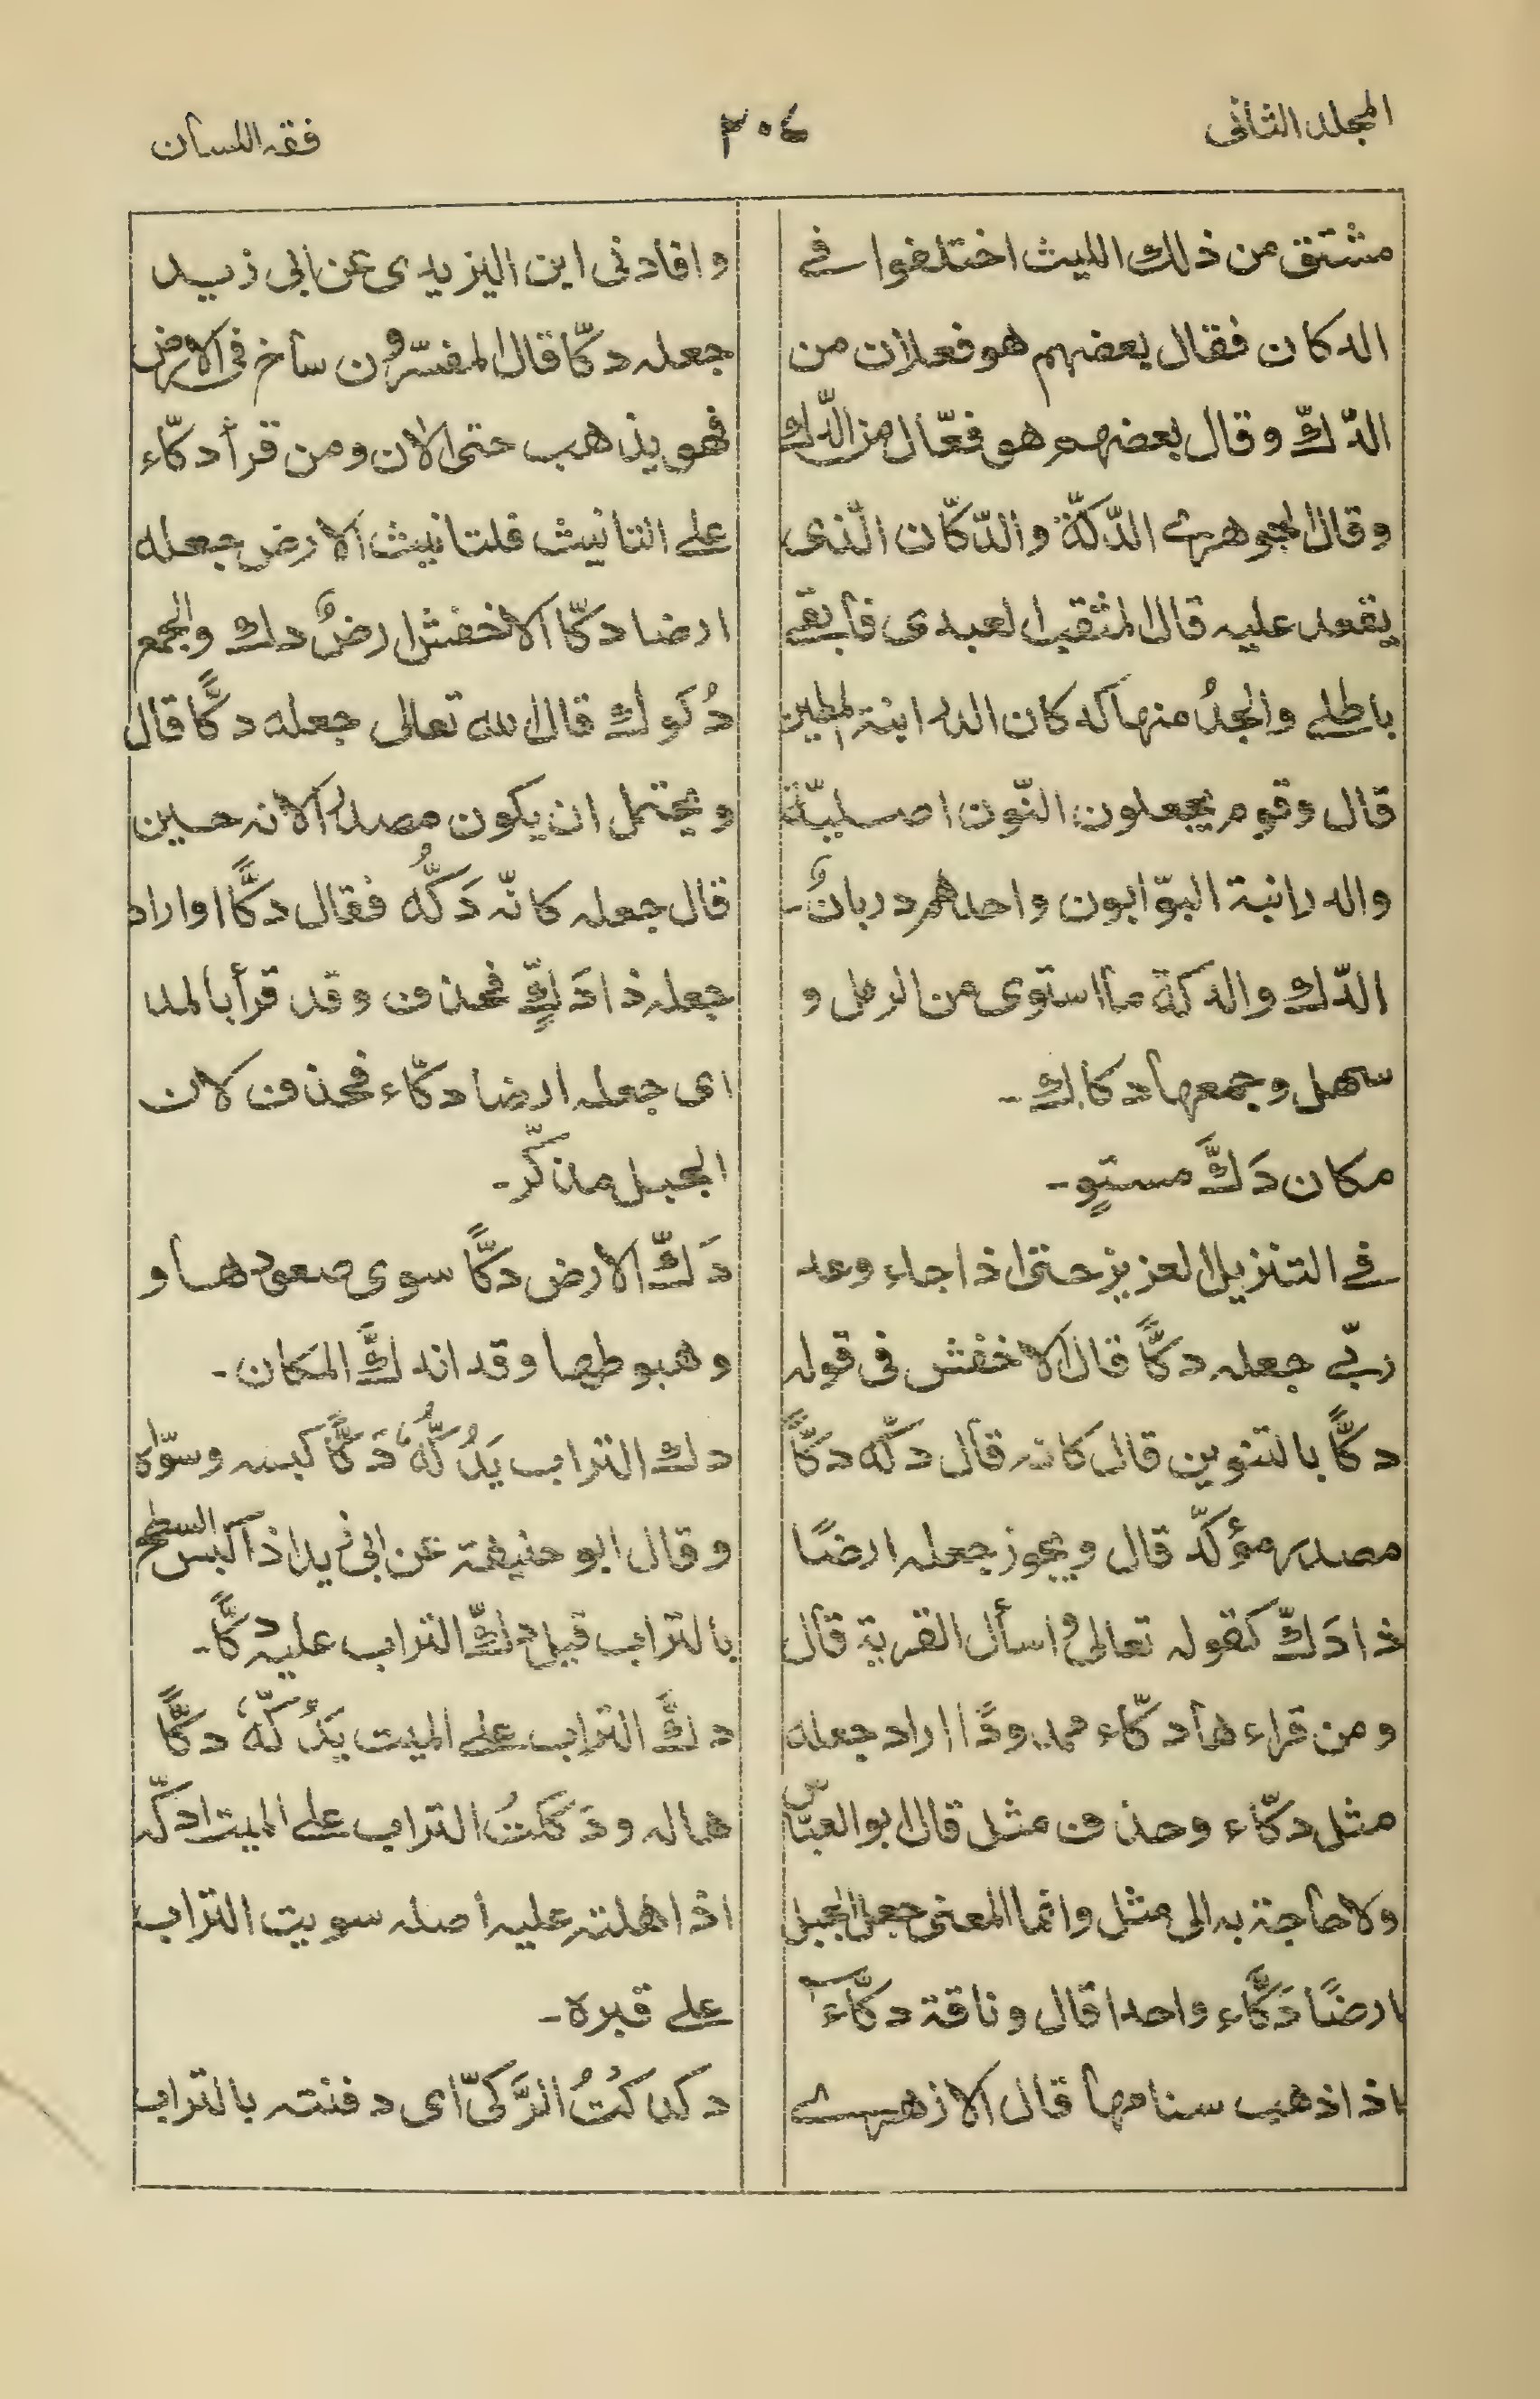 المجلد الثانی
٣٠٤
فقہ اللسان
مشتق من ذلك الليث اختلفوا فے
الدكان فقال بعضهم هو فعلان من
الدّكّ وقال بعضهم هو فعّال من الدّك
وقال الجوهرے الدّكّة والدّكّان الّذی
يقعد عليہ قال المثقب العبدی فأبقے
باطلے والجدُ منها كدكان الدرابنة المطين
قال وقوم يجعلون النّون اصليّة
والدرابنة البوّابون واحدهم دربانٌ۔
الدّك والدكة مااستوی من الرمل و
سهل وجمعها دكاك۔
مكان دَكٌّ مستوٍ۔
فے التنزيل العزيز حتی اذا جاء وعد
ربّے جعلہ دكًّا قال الاخفش فی قولہ
دكًّا بالتنوين قال كانہ قال دكّه دكًّا
مصدر مؤكدّ قال ويجوز جعلہ ارضًا
ذا دَكٍّ كقولہ تعالی واسأل القرية قال
ومن قراءها دكّاء ممدودًا اراد جعلہ
مثل دكّاء وحذف مثل قال ابو العبّاس
ولا حاجة بہ الی مثل وانما المعنی جعل الجبل
ارضًا دَكّاء واحدا قال وناقة دكّاء
اذا ذهب سنامها قال الازهرے
وافادنی ابن اليزيدی عن ابی زيد
جعلہ دكّا قال المفسّرون ساخ فی الارض
فهو يذهب حتی الان ومن قرأ دكّاء
علے التانيث فلتانيث الارض جعلہ
ارضا دكّا الاخفش ارضٌ دك والجمع
دُكوك قال اللہ تعالی جعلہ دكًّا قال
ويحتمل ان يكون مصدرا لانہ حين
قال جعلہ كانّہ دَكَّهُ فقال دكًّا او اراد
جعلہ ذا دَكٍّ فحذف وقد قرأ بالمد
ای جعلہ ارضا دكّاء فحذف لان
الجبل مذكّر۔
دَكّ الارض دكًّا سوی صعودها و
وهبوطها وقد اندكَّ المكان۔
دك التراب يَدُكُّهُ دَكًّا كبسہ وسوّاه
وقال ابو حنيفة عن ابی زيد اذا كبس السطح
بالتراب قيل دكّ التراب عليہ دكًّا۔
دكَّ التراب علے الميت يَدُكّهُ دكًّا
هالہ ودَككتُ التراب علے الميت ادكّہ
اذا هلتہ عليہ اصلہ سويت التراب
علے قبرہ۔
دكدكتُ الرَّكیّ ای دفنتہ بالتراب